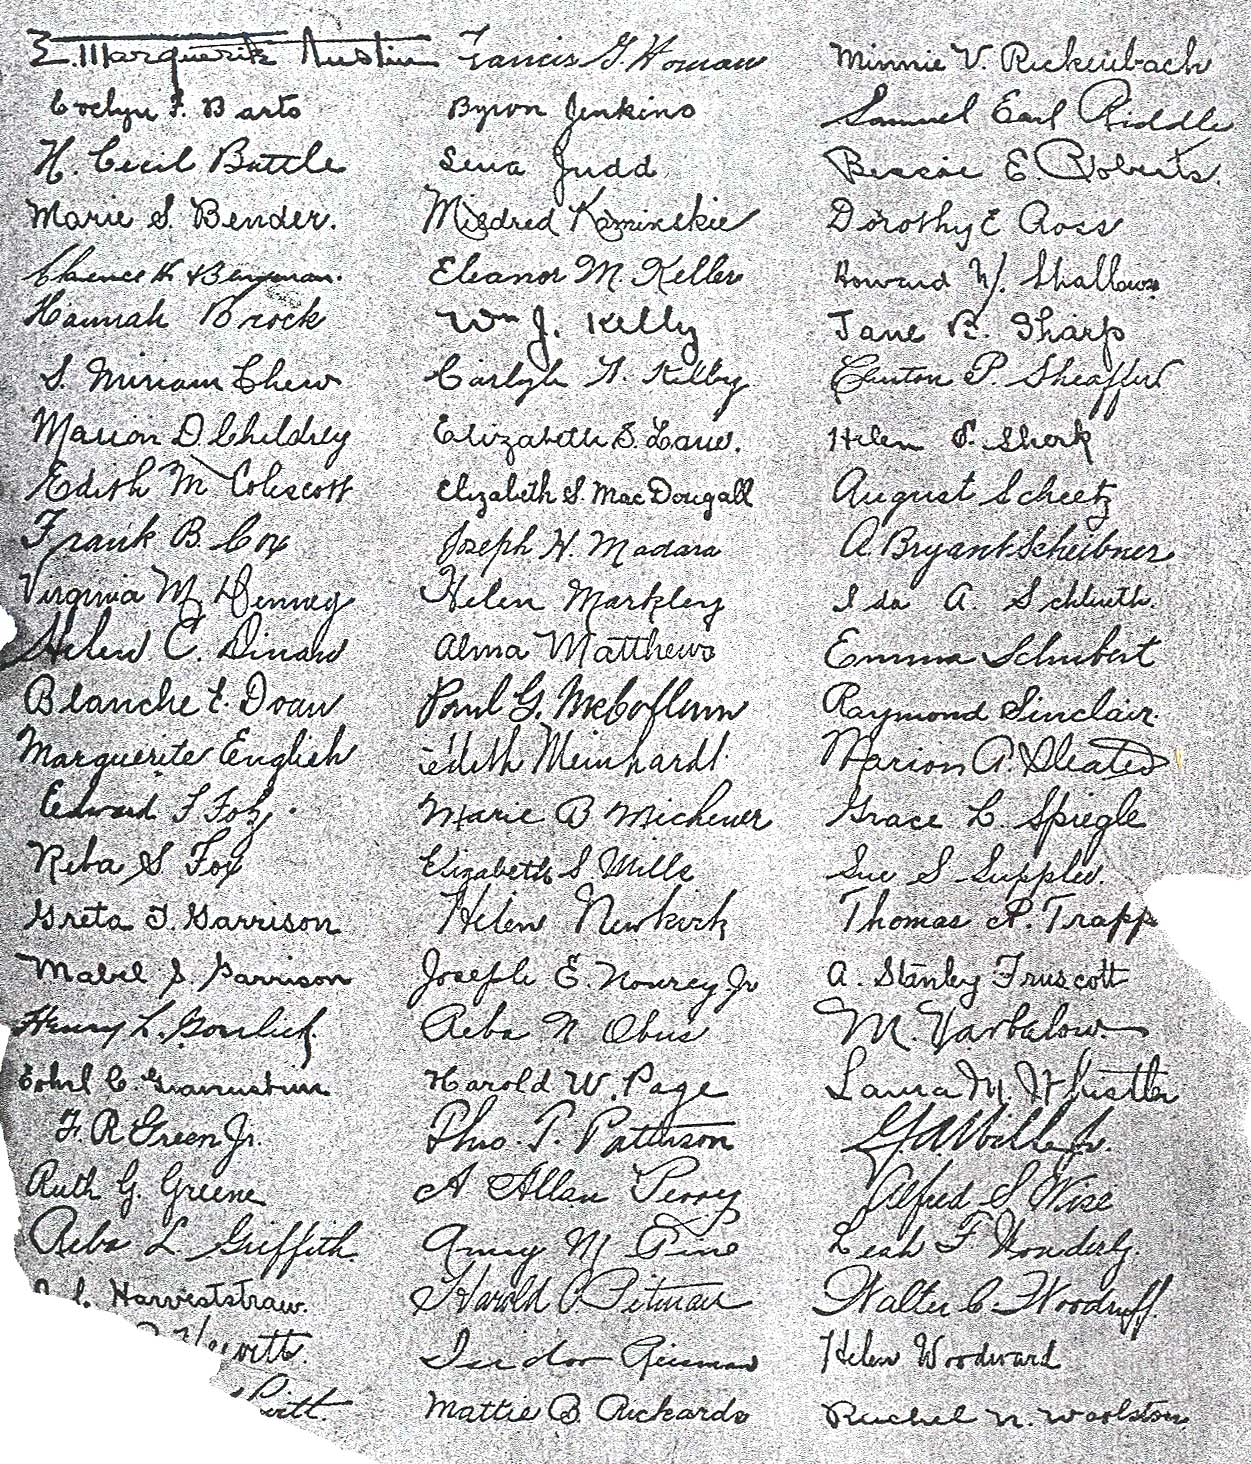 E. Marguerite Austin
Evelyn F. Barto
H. Cecil Battle
Marie S. Bender.
Clarence K. Bergman.
Hannah Brock
S. Miriam Chew
Marion D. Childrey
Edith M. Coliscott
Frank B. Cox
Virginia M. Denney
Helen C. Dinan
Blanche E. Doan
Marguerite English
Edward F Foly
Reba S Fox
Greta F. Garrison
Mabel S. Garrison
Henry L.
Ethel C.
F. R Green Jr.
Ruth G. Greene
Reba L. Griffith.
Harveststraw.
Hewitt.
Francis G. Homan
Byron Jenkins
Judd
Mildred Kaminskie
Eleanor M. Keller
Wm J. Kelly
Carlyle H. Kilby
Elizabeth S. Lane.
Elizabeth S. MacDougall
Joseph H. Madara
Helen Markley
Alma Matthews
Paul G. McCollum
Edith Meinhardt
Marie B Michener
Elizabeth S Mills
Helen Newkirk
Joseph E. Nourey Jr
Reba N Obus
Harold W. Page
Theo. T. Patterson
A Allan Perry
Amy M Pine
Harold C Pitman
Isidor Reisman
Mattie B. Rickards
Minnie V. Rickenbach
Samuel Earl Riddle
Bessie E Roberts.
Dorothy E Ross
Howard N. Shallows
Jane B. Sharp
Clinton P. Sheaffer
Helen P. Sherk
August Scheetz
A. Bryant Scheibner
Ida A. Schlueth.
Emma Schubert
Raymond Sinclair.
Marion A. Sleated
Grace L. Spiegle
Sue S Supplee.
Thomas R. Trapp
A. Stanley Truscott
M. Varbalow
Laura M. Whistler
Alfred S Wise
Leah F. Wonderly.
Walter C. Woodruff.
Helen Woodward
Rachel N. Woolston.